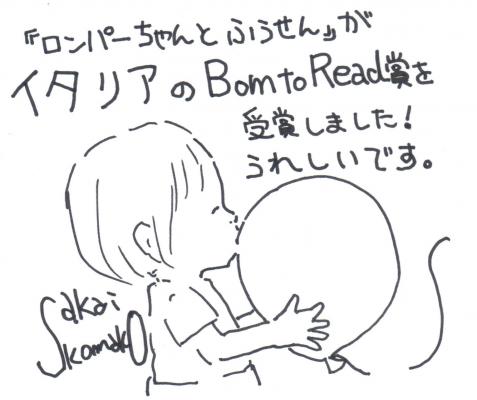 『ロンパーちゃんとふうせん』が
イタリアのBorntoRead賞を
受賞しました!
うれしいです。
Sakai
Komako